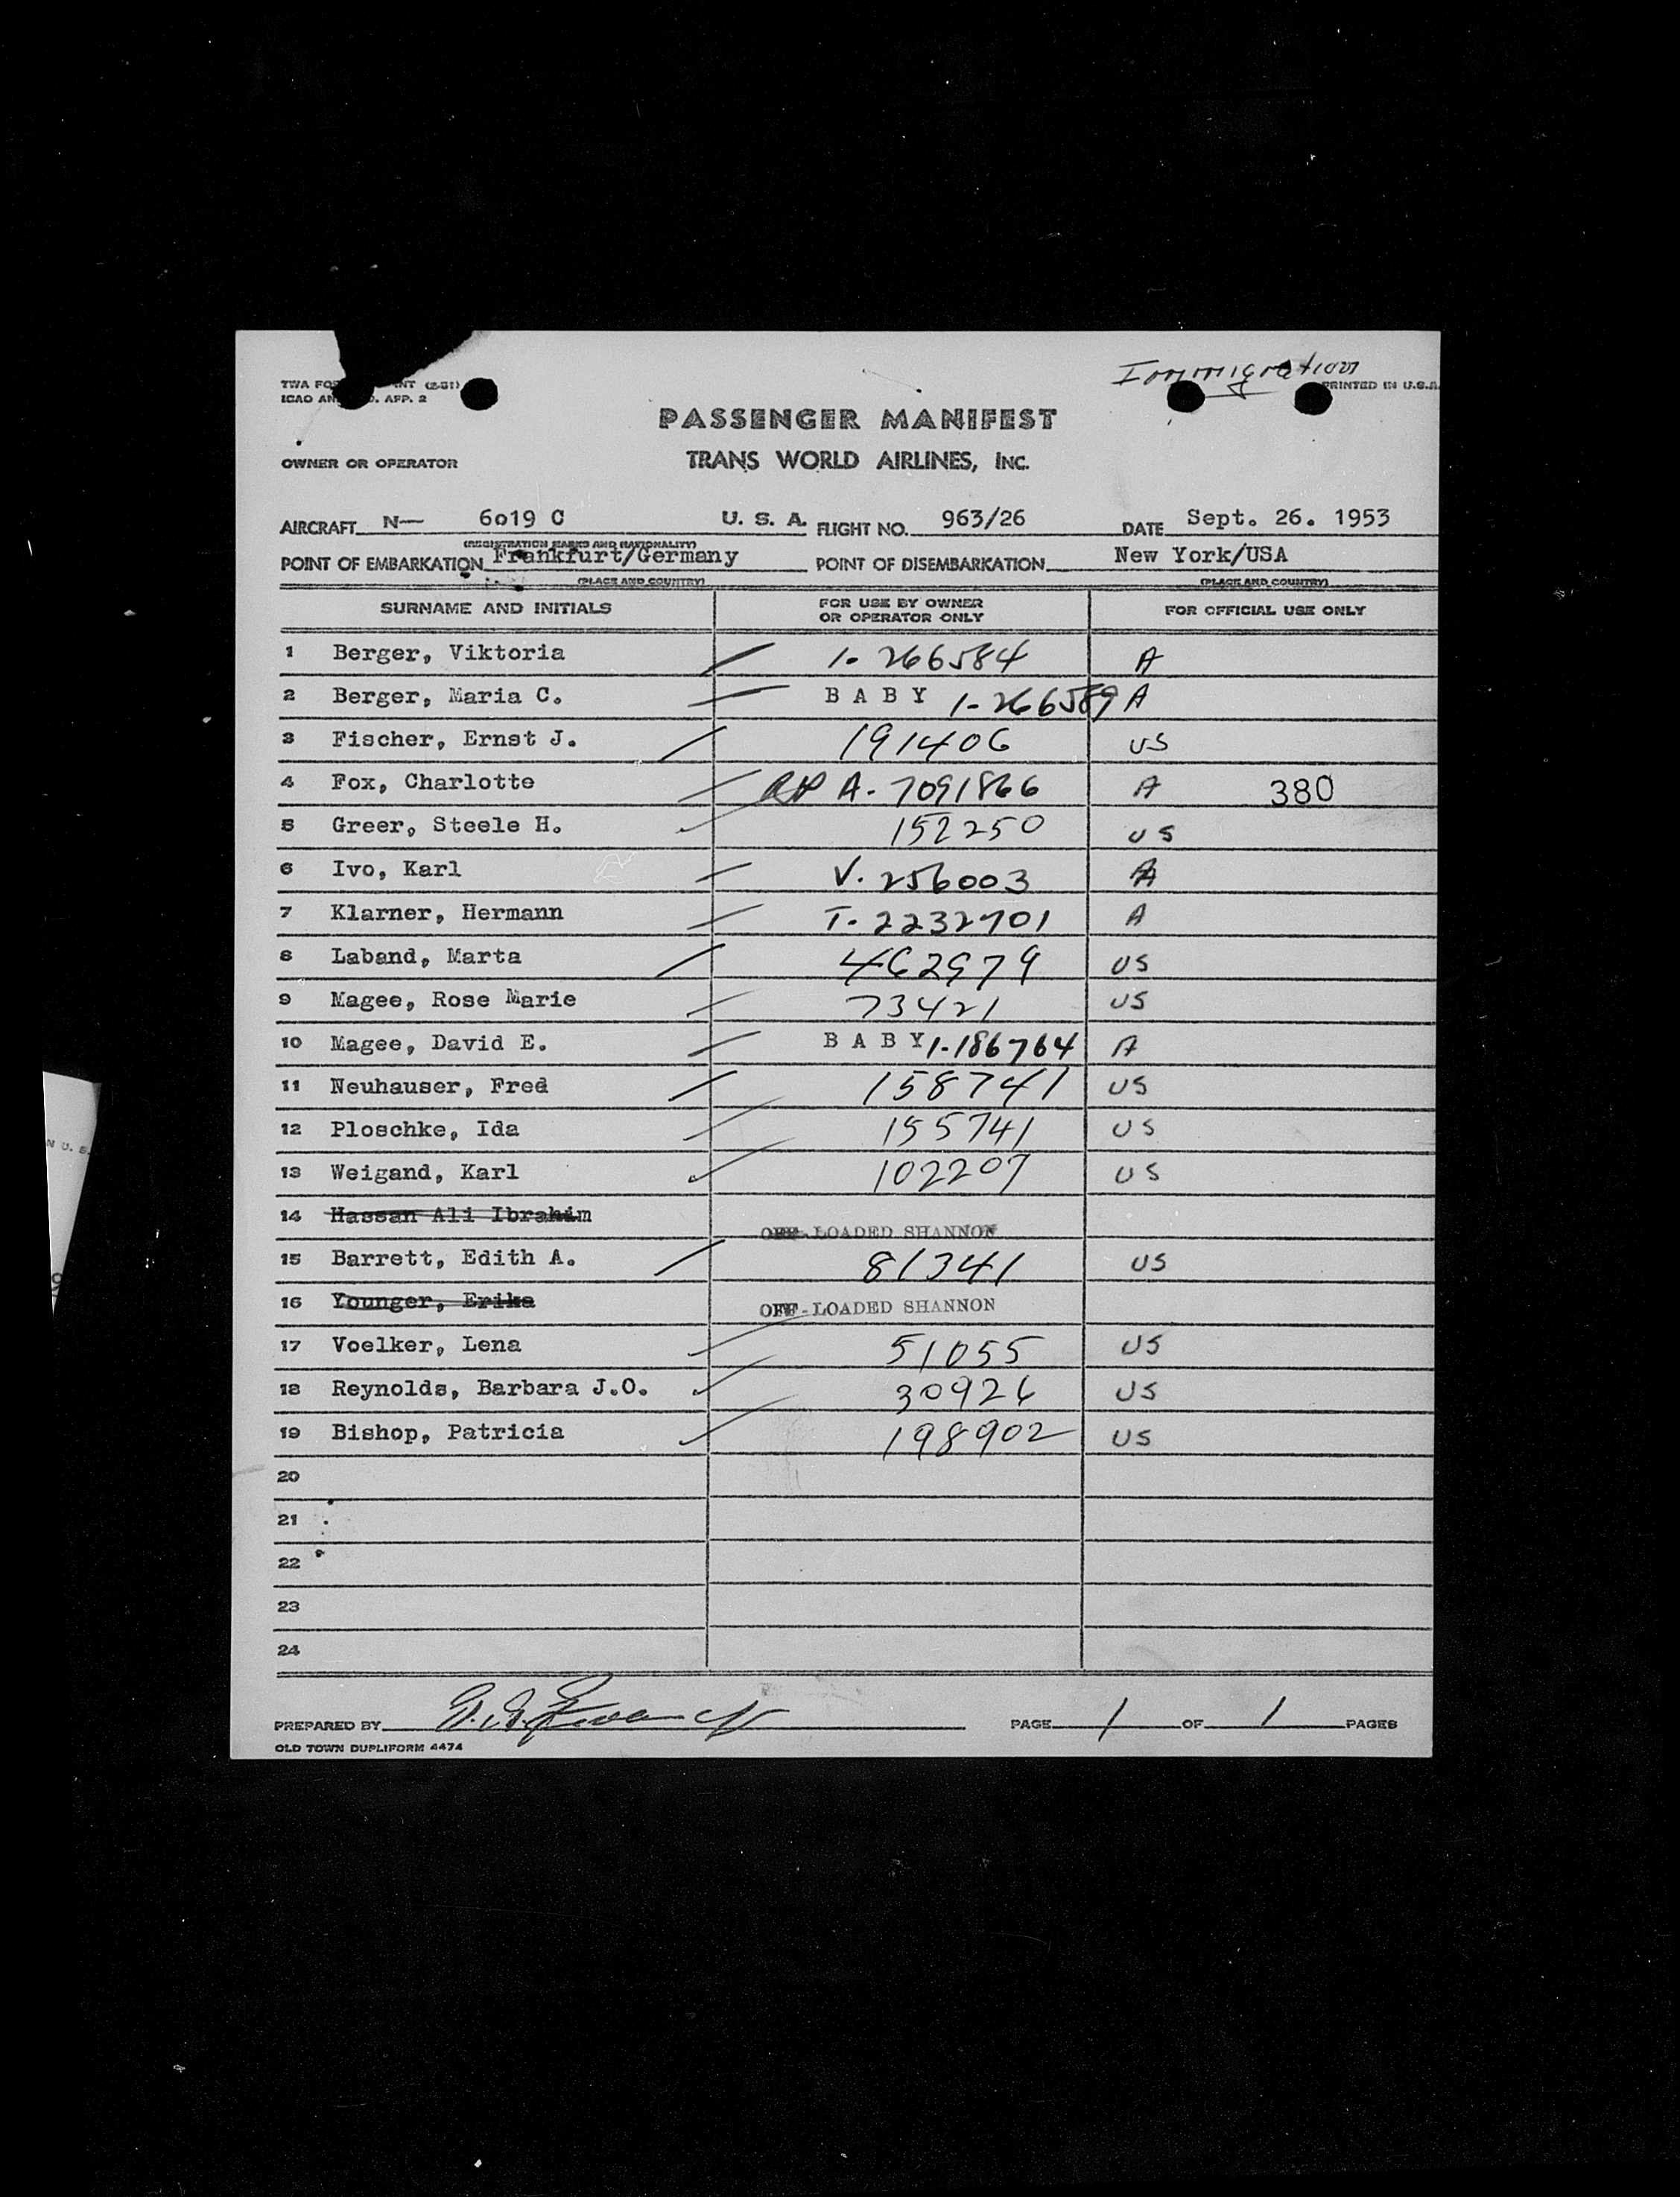 Immigration
TWA FO NT (2-51) PRINTED IN U.S.A.
ICAO AN . APP. 2
PASSENGER MANIFEST
OWNER OR OPERATOR TRANS WORLD AIRLINES, INC.
AIRCRAFT N— 6o19 C U. S. A. FLIGHT NO. 963/26 DATE Sept. 26. 1953
(REGISTRATION MARKS AND NATIONALITY)
POINT OF EMBARKATION Frankfurt/Germany POINT OF DISEMBARKATION New York/USA
(PLACE AND COUNTRY) (PLACE AND COUNTRY)
SURNAME AND INITIALS FOR USE BY OWNER OR OPERATOR ONLY FOR OFFICIAL USE ONLY
1 Berger, Viktoria 1-266584 A
2 Berger, Maria C. B A B Y 1-266589 A
3 Fischer, Ernst J. 191406 US
4 Fox, Charlotte RP A-7091866 A 380
5 Greer, Steele H. 152250 US
6 Ivo, Karl V-256003 A
7 Klarner, Hermann T-2232701 A
8 Laband, Marta 462979 US
9 Magee, Rose Marie 73421 US
10 Magee, David E. B A B Y 1-186764 A
11 Neuhauser, Fred 158741 US
12 Ploschke, Ida 155741 US
13 Weigand, Karl 102207 US
14 Hassan Ali Ibrahim OFF-LOADED SHANNON
15 Barrett, Edith A. 81341 US
16 Younger, Erika OFF-LOADED SHANNON
17 Voelker, Lena 51055 US
18 Reynolds, Barbara J.O. 30926 US
19 Bishop, Patricia 198902 US
20
21
22
23
24
PREPARED BY PAGE 1 OF 1 PAGES
OLD TOWN DUPLIFORM 4474
N U. S.